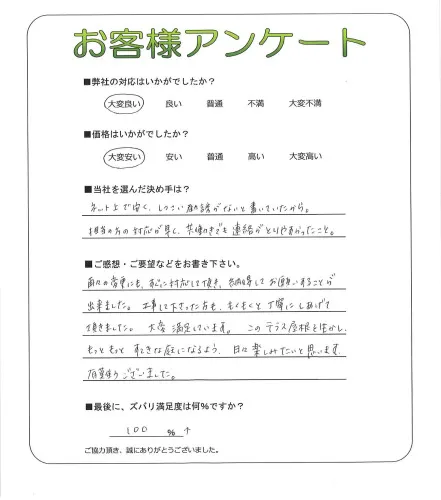 お客様アンケート
■弊社の対応はいかがでしたか？
大変良い 良い 普通 不満 大変不満
■価格はいかがでしたか？
大変安い 安い 普通 高い 大変高い
■当社を選んだ決め手は？
ネット上で安く、しつこい勧誘がないと書いていたから。
担当の方の対応が早く、共働きでも連絡がとりやすかったこと。
■ご感想・ご要望などをお書き下さい。
にも、対応して頂き、納得してお願いすることが
出来ました。工事して下さった方も、もくもくと丁寧にしあげて
頂きました。大変満足しています。このテラス屋根を生かし、
もっともっとすてきな庭になるよう、日々楽しみたいと思います。
有難うございました。
■最後に、ズバリ満足度は何％ですか？
100 ％
ご協力頂き、誠にありがとうございました。